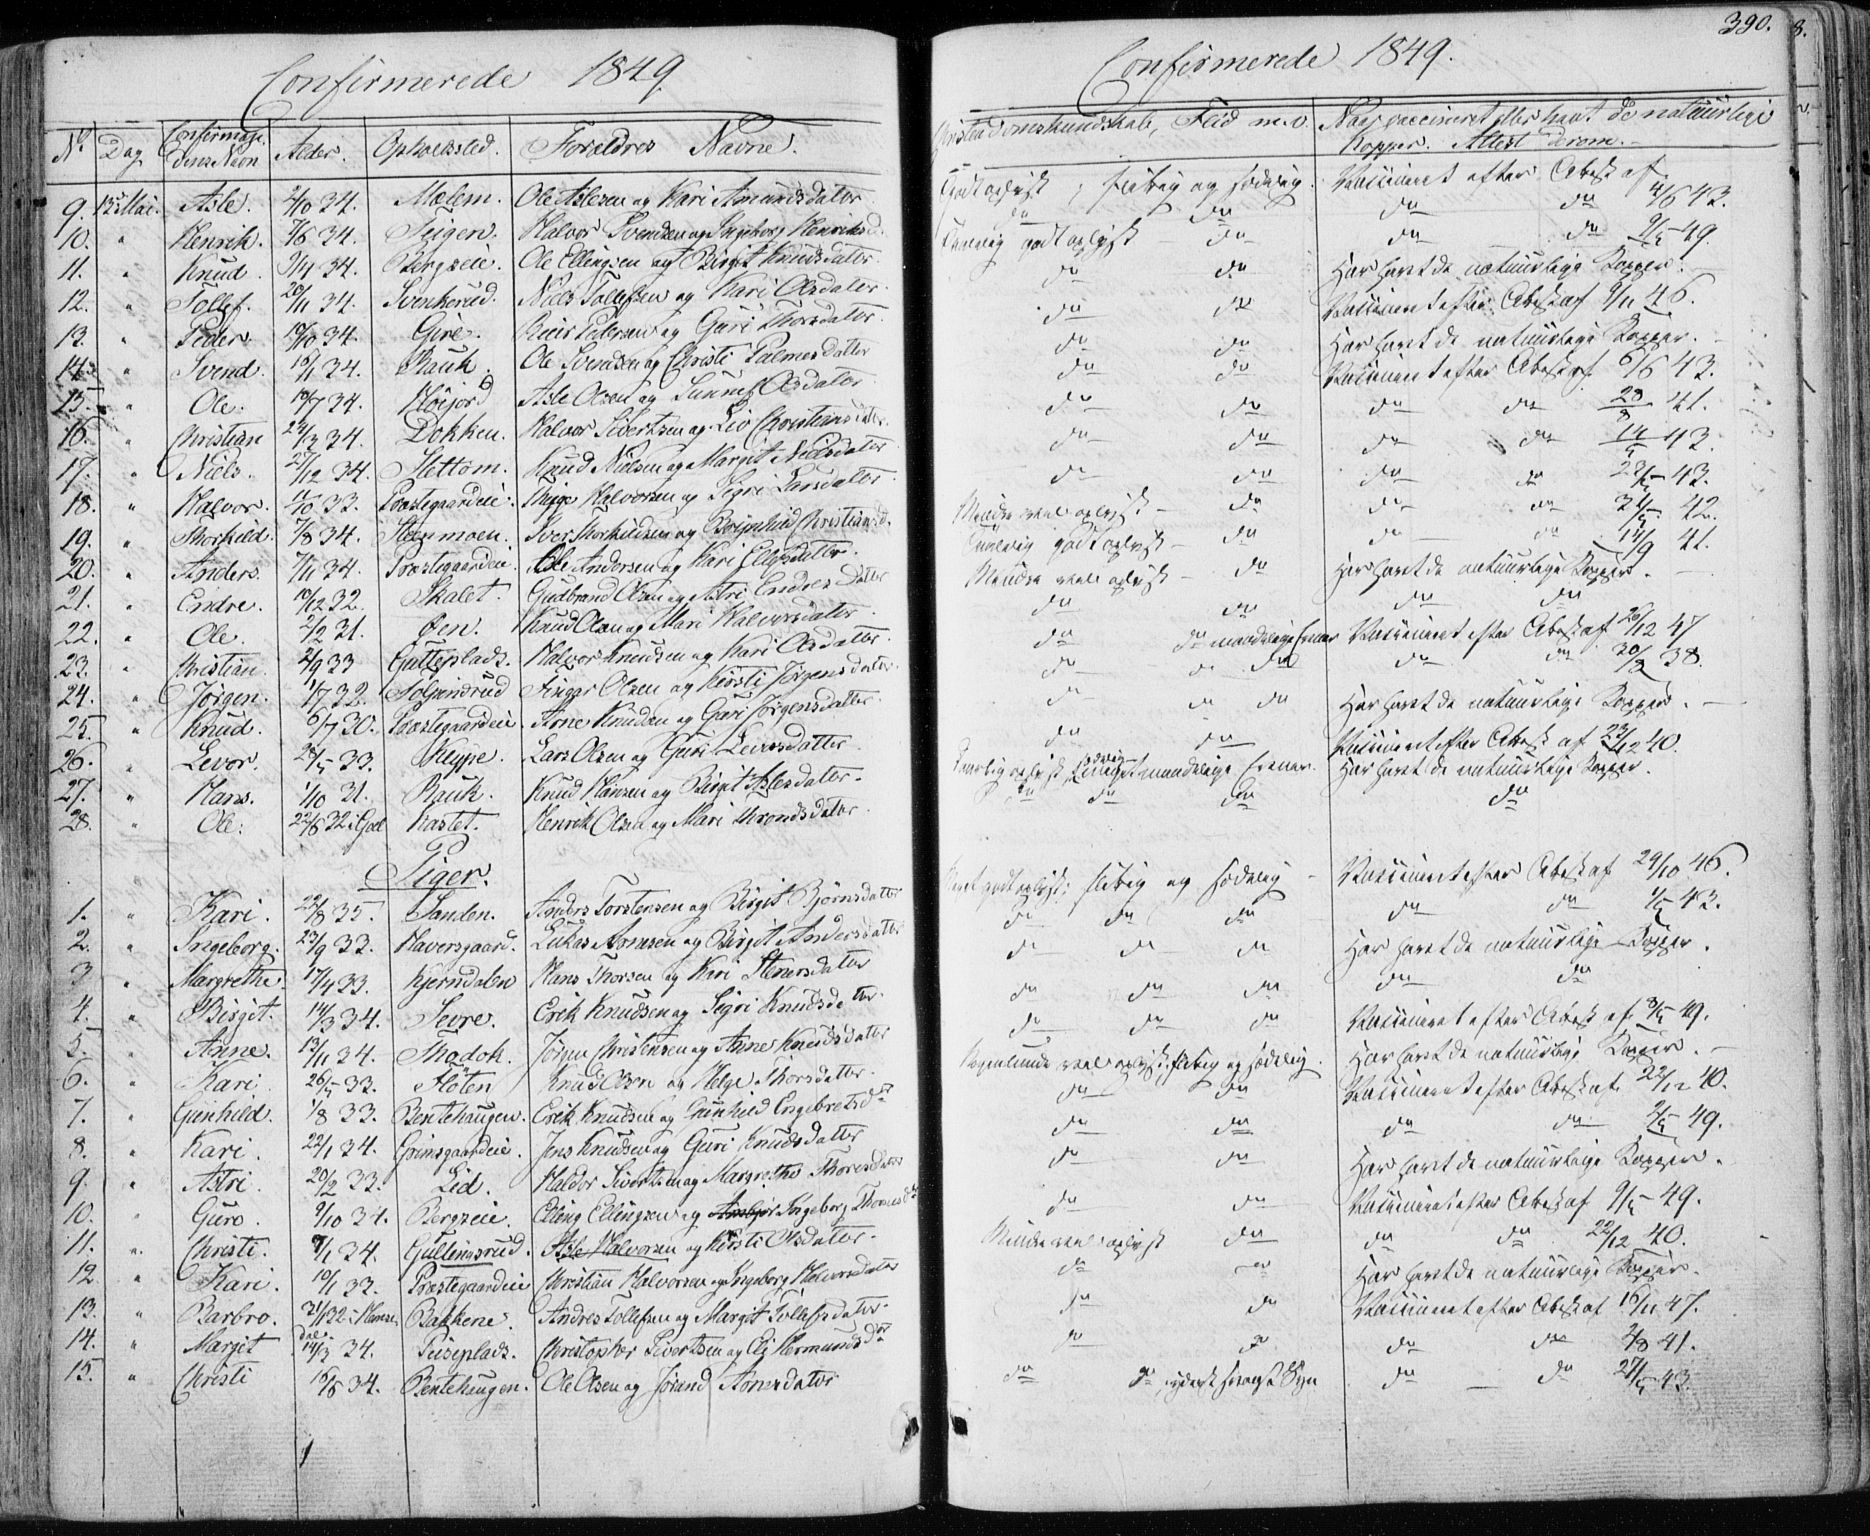 Confirmerede 1849.
No Dag Confirmandens Navn Alder. Opholdssted. Forældres Navne.
9. 13de Mai. Asle. 2/10 34. Molem. Ole Aslesen og Kari Amundsdatter
10. " Henrik. 7/6 34. Teigen. Halvor Svendsen og Ingeborg Henriksd.
11. " Knud. 34. Bergseie. Ole Ellingsen og Birgit Knudsdatter
12. " Tollef. 20/11 34. Svenkerud. Niels Tollefsen og Kari Olsdatter.
13. " Peder. 19/10 34. Gire. Reier Pedersen og Guri Thorsdatter.
14. " Svend. 34. Rauk. Ole Svendsen og Christi Palmesdatter
15. " Ole. 19/7 34. Høijord Asle Olsen og Sunnef Olsdatter
16. " Christian 34. Dokken. Halvor Sivertsen og Liv Christiansdatter.
17. " Niels. 27/12 34. Slettom. Knud Nielsen og Margit Nielsdatter
18. " Halvor. 33. Præstegaardeie. Halvorsen og Sigri Larsdatter.
19. " Thorkild. 7/8 34. Steinmoen. Iver Thorkildsen og Christiansd.
20. " Anders. 7/11 34. Præstegaardeie. Ole Andersen og Kari Ellefsdatter.
21. " Endre. 19/12 32. Skalet. Gudbrand Olsen og Astri Endresdatter
22. " Ole. 2/2 31. Øen. Knud Olsen og Mari Halvorsdatter
23. " Christian. 2/9 33 Gulleplads. Halvor Knudsen og Kari Olsdatter.
24. " Jørgen. 1/7 32. Finger Olsen og Kirsti Jørgensdatter.
25. " Knud. 6/7 30. Præstegaardeie. Arne Knudsen og Guri Jørgensdatter.
26. " Levor. 33. Lars Olsen og Guri Levorsdatter
27. " Hans. 1/10 31. Rauk. Knud Hansen og Birgit Aslesdatter.
28. " Ole. 22/6 32 i Gol Kastet. Henrik Olsen og Mari Throndsdatter.
Piger.
1. " Kari. 22/8 35. Sanden. Anders Torstensen og Birgit Bjørnsdatter
2. " Ingeborg. 23/9 33. Haversgaard. Lukas Arnesen og Birgit Andersdatter
3 " Margrethe. 17/4 33. Kjerndalen Hans Thorsen og Kari Stenersdatter
4. " Birgit. 14/3 34. Sevre. Erik Knudsen og Sigri Knudsdatter.
5. " Anne. 13/11 34. Jørgen Christensen og Anne Knudsdatter
6. " Kari 26/5 33. Fløten Knud Olsen og Helge Thorsdatter.
7. " Gunhild. 1/8 33. Bentehaugen. Erik Knudsen og Gunhild Engebretsdr
8. " Kari. 22/1 34. Grimsgaardeie. Jens Knudsen og Guri Knudsdatter
9. " Astri. 20/2 33. Lid. Haldor Sivertsen og Margrethe Thoresdatter
10. " Guro. 9/10 34. Bergseie. Elling Ellingsen og Ingeborg
11. " Christi. 34. Gulleinsrud. Asle Halvorsen og Kirsti Olsdatter.
12. " Kari 19/1 33. Præstegaardeie Christian Halvorsen og Ingeborg Halvorsdatter
13. " Barbro. 32 Bakkene. Andres Tollefsen og Margit Tollefsdatter.
14. " Margit 14/3 34. Peiseplads. Christopher Sivertsen og Eli Hermundsdr
15. " Christi 34. Bentehaugen. Ole Olsen og Jørand Arnesdatter
390.
Confirmerede 1849.
Christendomskundskab, Flid m.v. Naar vaccineret eller havt de naturlige Kopper. Attest derom.
Godt oplyst; flittig og sædelig. Vaccineret efter Attest af 4/6 43.
do do do do 49.
do do Har havt de naturlige Kopper.
do do Vaccineret efter Attest af 9/11 46.
do do Har havt de naturlige Kopper.
do do Vaccineret efter Attest af 6/6 43.
do do do do 41.
do do do do 43.
do do do do 43.
Mindre vel oplyst do do do 42.
do do do 14/9 41.
Mindre vel oplyst do Har havt de naturlige Kopper.
do do do do
do do Vaccineret efter Attest af 20/12 47
do do do do 38.
do do Har havt de naturlige Kopper.
do do Vaccineret efter Attest af 23/12 40.
Har havt de naturlige Kopper.
do do do do
Meget godt oplyst; flittig og sædelig Vaccineret efter Attest af 29/10 46.
do do do do do 43.
do do do Har havt de naturlige Kopper.
do do do do do
do do do Vaccineret efter Attest af 49.
Nogenlunde vel oplyst; flittig og sædelig. Har havt de naturlige Kopper.
do do Vaccineret efter Attest af 22/12 40.
do do do do 49.
do do Har havt de naturlige Kopper.
do do Vaccineret efter Attest af 49.
Mindre vel oplyst do do do 22/12 40.
do do Har havt de naturlige Kopper.
do do Vaccineret efter Attest af 16/11 47.
do do do do 2/8 41.
do do, yderst svagt Syn do do 43.